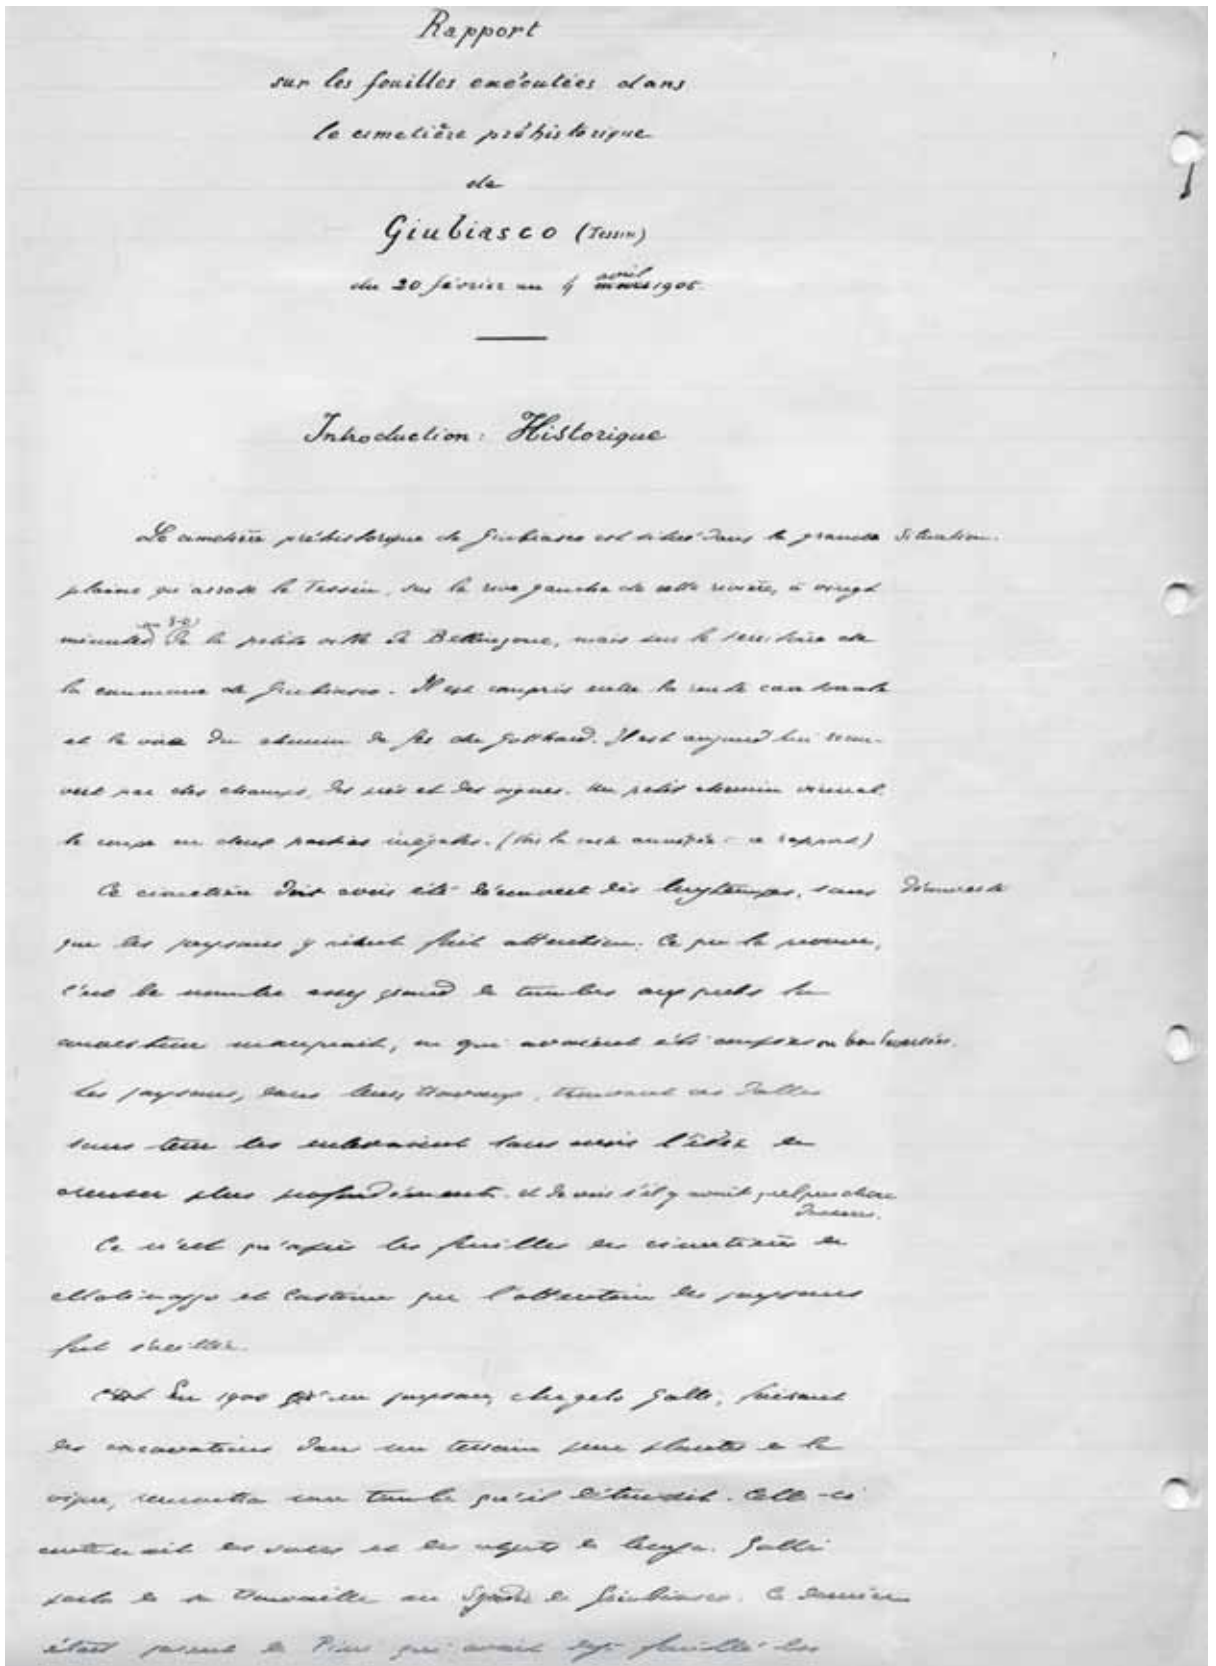 Rapport
sur les fouilles exécutées dans
le cimetière préhistorique
de
Giubiasco (Tessin)
du 20 février au 4 avril 1905.
Introduction: Historique
Le cimetière préhistorique de Giubiasco est situé dans la grande Situation.
plaine qu'arrose le Tessin, sur la rive gauche de cette rivière, à vingt
minutes de la petite ville de Bellinzone, mais sur le territoire de
la commune de Giubiasco. Il est compris entre la route cantonale
et la voie du chemin de fer du Gotthard. Il est aujourd'hui recou-
vert par des champs, des prés et des vignes. Un petit chemin vicinal
le coupe en deux parties inégales. (Voir la carte annexée à ce rapport)
Ce cimetière doit avoir été découvert dès longtemps, sans Découverte
que les paysans y aient fait attention. Ce qui le prouve,
c'est le nombre assez grand de tombes auxquels la
couverture manquait, ou qui avaient été coupées ou bouleversées.
Les paysans, dans leurs travaux, trouvant ces dalles
sous terre les enlevaient sans avoir l'idée de
creuser plus profondément et de voir s'il y avait quelque chose
dessous.
Ce n'est qu'après les fouilles des cimetières de
Molinazzo et Castione que l'attention des paysans
fut éveillée.
En 1900 un paysan, Angelo Galli, faisant
des excavations dans un terrain pour planter de la
vigne, rencontra une tombe qu'il détruisit. Celle-ci
contenait des vases et des objets de bronze. Galli
parla de sa trouvaille au Syndic de Giubiasco. Ce dernier
étant parent de Pini qui avait déjà fouillé les